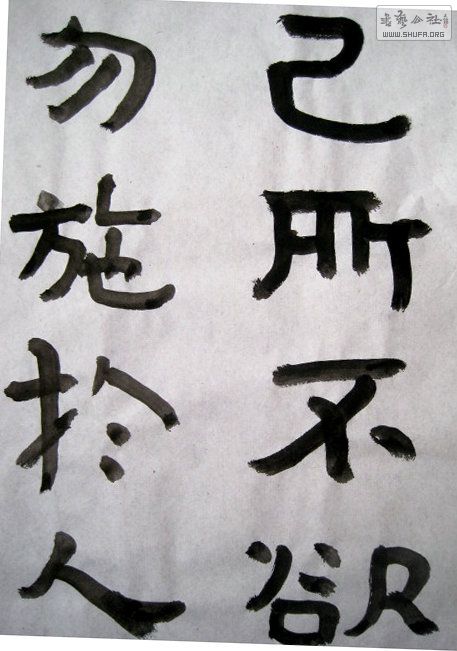 己所不欲
勿施於人
WWW.SHUFA.ORG